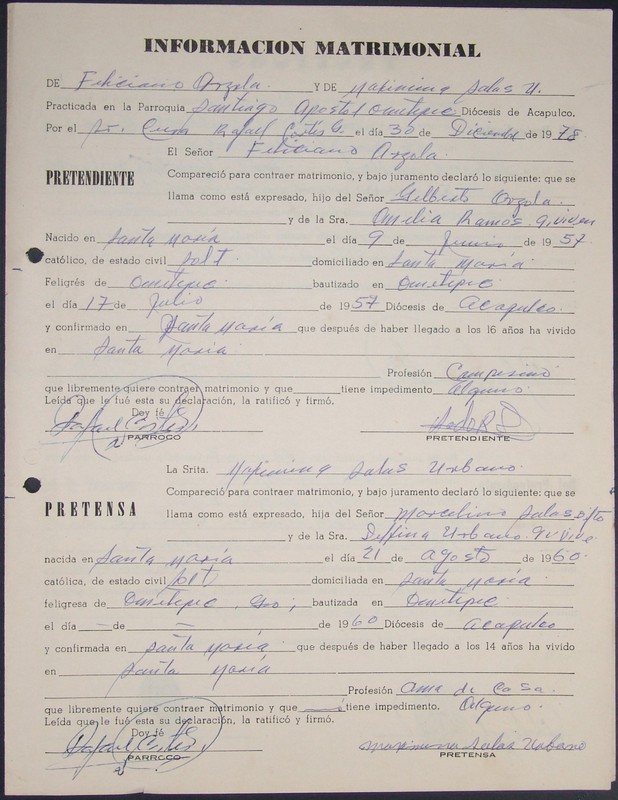 INFORMACION MATRIMONIAL
DE Feliciano Arzola. Y DE Maximina Salas U.
Practicada en la Parroquia Santiago Apostol Ometepec Diócesis de Acapulco.
Por el Sr. Cura Rafael Cortés G. el día 30 de Diciembre de 1978.
El Señor Feliciano Arzola.
PRETENDIENTE
Compareció para contraer matrimonio, y bajo juramento declaró lo siguiente: que se
llama como está expresado, hijo del Señor Gilberto Arzola.
y de la Sra. Amelia Ramos. q. viven
Nacido en Santa María el día 9 de Junio de 1957.
católico, de estado civil solt. domiciliado en Santa María.
Feligrés de Ometepec. bautizado en Ometepec.
el día 17 de Julio de 1957 Diócesis de Acapulco.
y confirmado en Santa María que después de haber llegado a los 16 años ha vivido
en Santa María.
Profesión Campesino
que libremente quiere contraer matrimonio y que tiene impedimento alguno.
Leída que le fué esta su declaración, la ratificó y firmó.
Doy fé
Rafael Cortés
PARROCO PRETENDIENTE
La Srita. Maximina Salas Urbano.
PRETENSA
Compareció para contraer matrimonio, y bajo juramento declaró lo siguiente: que se
llama como está expresado, hijo del Señor Marcelino Salas Difto
y de la Sra. Delfina Urbano. q vive.
nacida en Santa María el día 21 de agosto de 1960.
católica, de estado civil solt. domiciliada en Santa María.
feligresa de Ometepec, Gro; bautizada en Ometepec.
el día — de — de 1960 Diócesis de Acapulco
y confirmada en Santa María. que después de haber llegado a los 14 años ha vivido
en Santa María
Profesión ama de casa.
que libremente quiere contraer matrimonio y que tiene impedimento. alguno.
Leída que le fué esta su declaración, la ratificó y firmó.
Doy fé
Rafael Cortés Maximina Salas Urbano
PARROCO PRETENSA